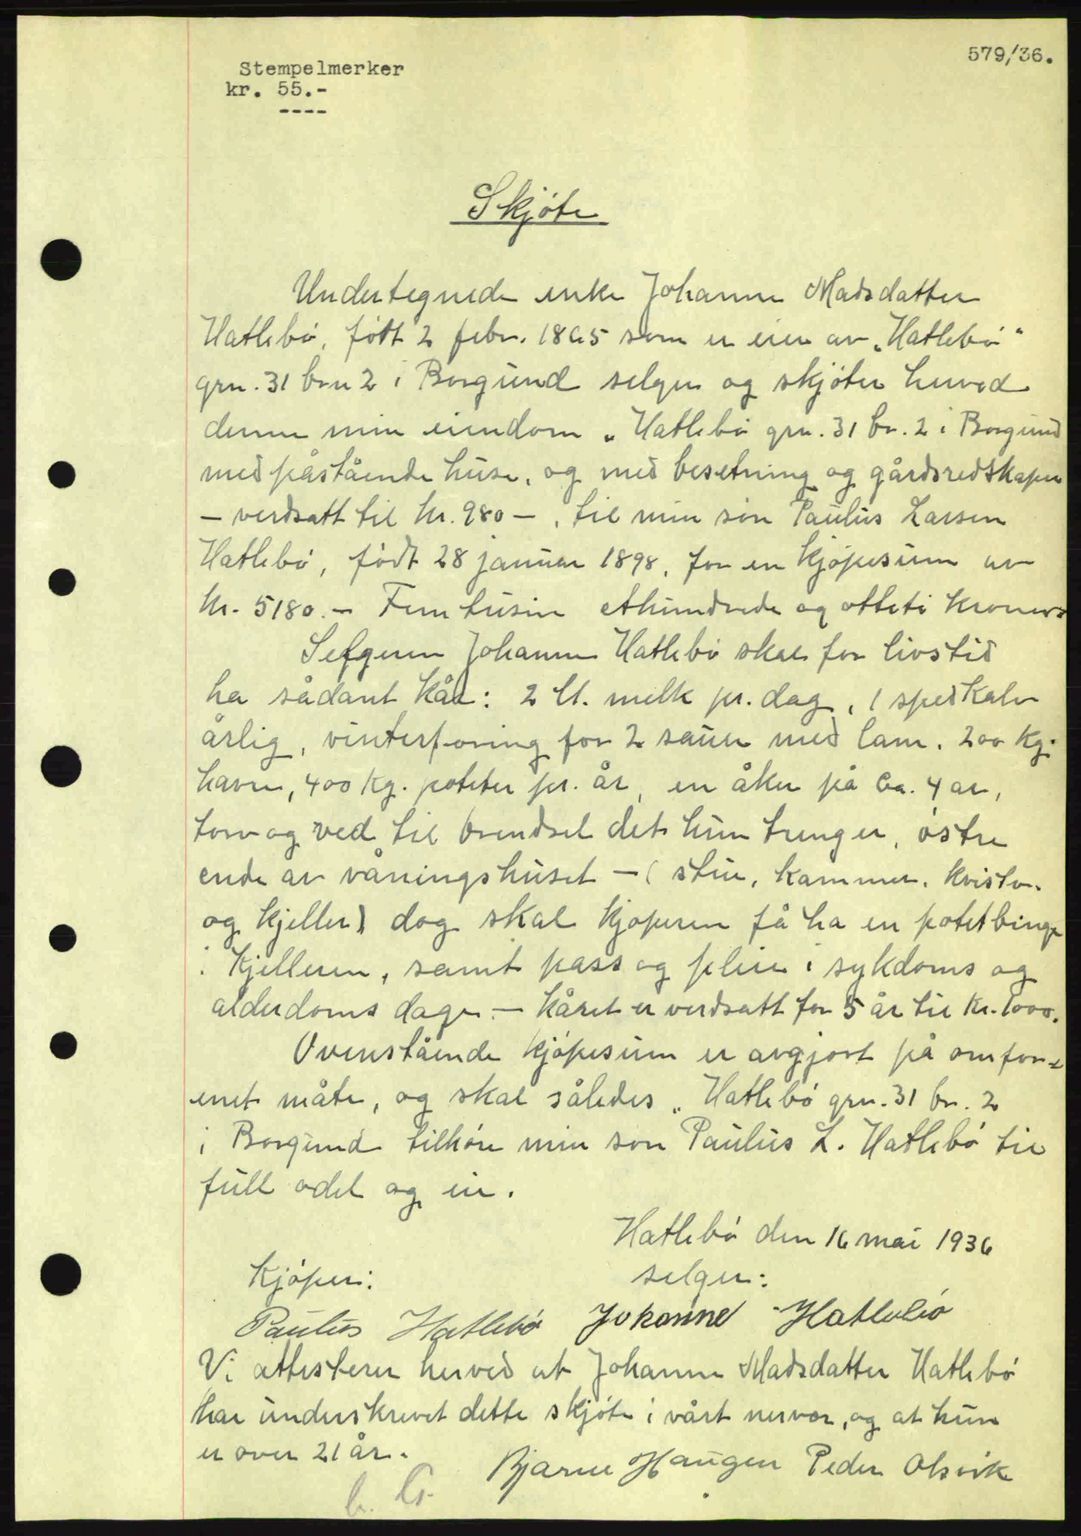 579/36.
Stempelmerker
kr. 55.-
----
Skjøte
Undertegnede enke Johanne Madsdatter
Hatlebö, født 2 febr. 1865 som er eier av „Hatlebö"
grn. 31 brn 2 i Borgund selger og skjöter herved
denne min eiendom „Hatlebö grn. 31 br. 2 i Borgund
med påstående huse, og med besetning og gårdsredskaper
– verdsatt til kr. 980 –, til min sön Paulus Larsen
Hatlebö, født 28 januar 1898, for en kjöpesum av
kr. 5180.– Fem tusin ethundrede og otteti kroner
Selgeren Johanne Hatlebö skal for livstid
ha sådant kår: 2 lt. melk pr. dag, 1 spedkalv
årlig, vinterforing for 2 sauer med lam. 200 kg.
havre, 400 kg. poteter pr. år, en åker på ca. 4 ar,
torv og ved til brendsel det hun trenger, östre
ende av våningshuset – (stue, kammer, kvistv.
og kjeller) dog skal kjöperen få ha en potetbinge
i kjelleren, samt pass og pleie i sykdoms og
alderdoms dage. – Kåret er verdsatt for 5 år til kr. 1000.
Ovenstående kjöpesum er avgjort på omfor-
enet måte, og skal således „Hatlebö grn. 31 br. 2
i Borgund tilhöre min sön Paulus L. Hatlebö til
full odel og eie.
Hatlebö den 16 mai 1936
Kjöper: selger:
Paulus Hatlebö Johanne Hatlebö
Vi attesterer herved at Johanne Madsdatter Hatlebö
har underskrevet dette skjöte i vårt nervær, og at hun
er over 21 år.
Bjarne Haugen Peder Alsvik